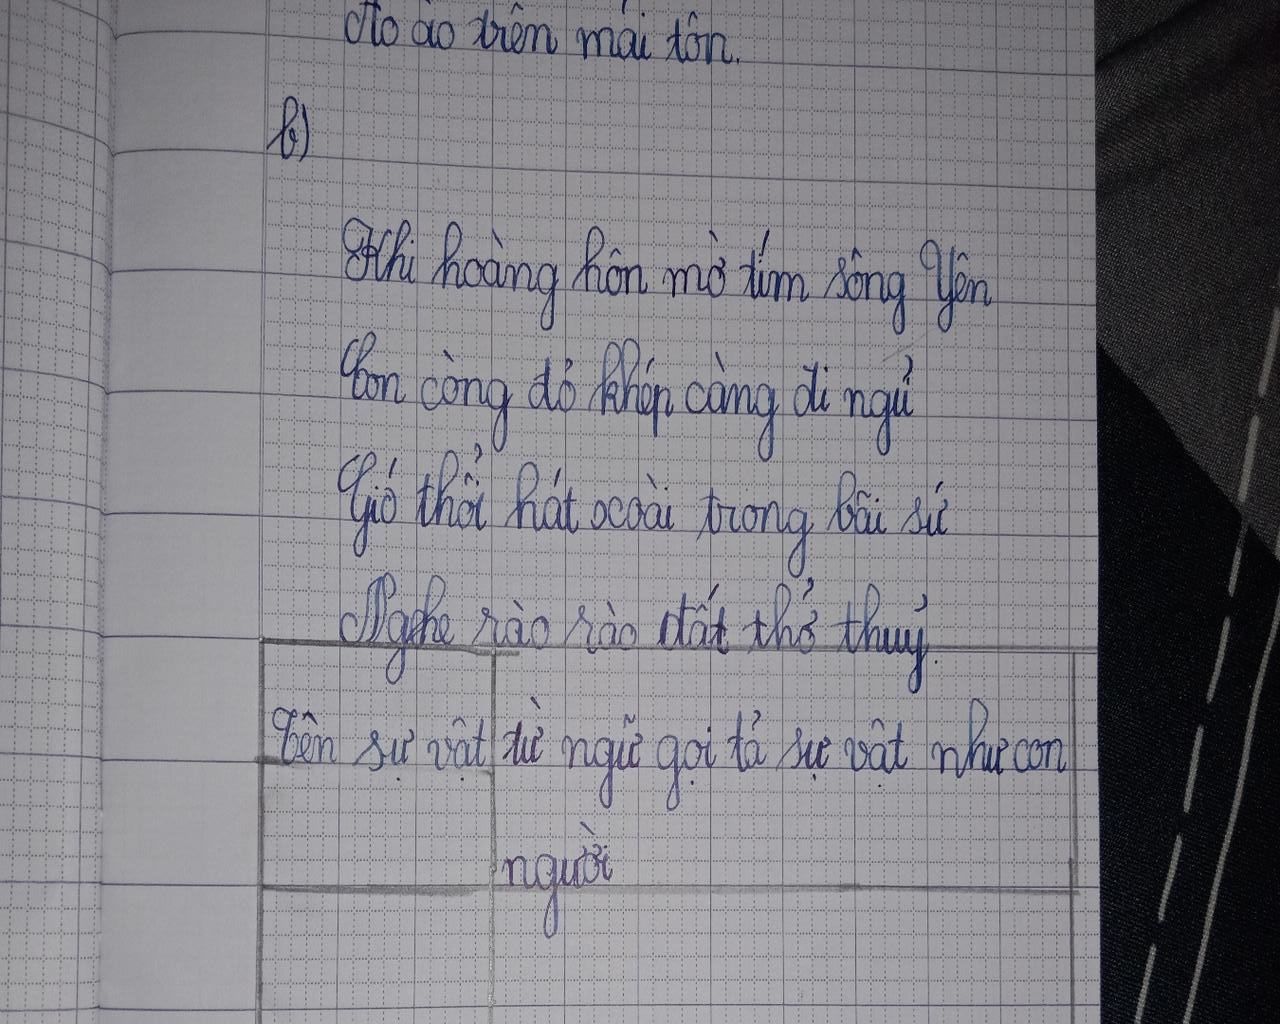 ồ ào trên mái tôn.
b)
Khi hoàng hôn mờ tím sông Yên
Con còng đỏ khép càng đi ngủ
Gió thổi hát xoài trong bãi sú
Nghe rào rào đất thở thuỷ.
Tên sự vật từ ngữ gọi tả sự vật như con
người